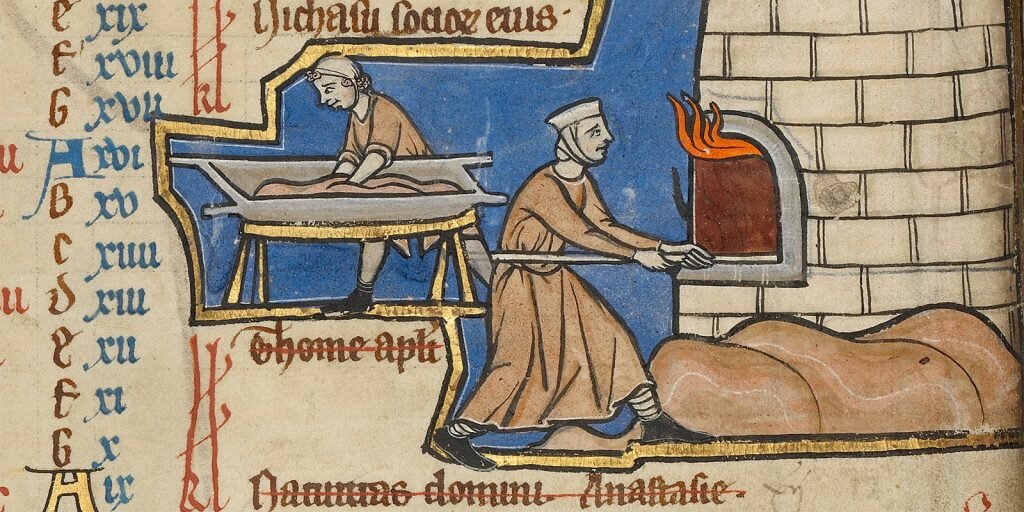 e xix Nichasii socior eius·
f xviii
G xvii kl
A xvi
B xv
c xiiii
d xiii
e xii Thome apli
f xi
G x
A ix kl Natiuitas domini. Anastasie.